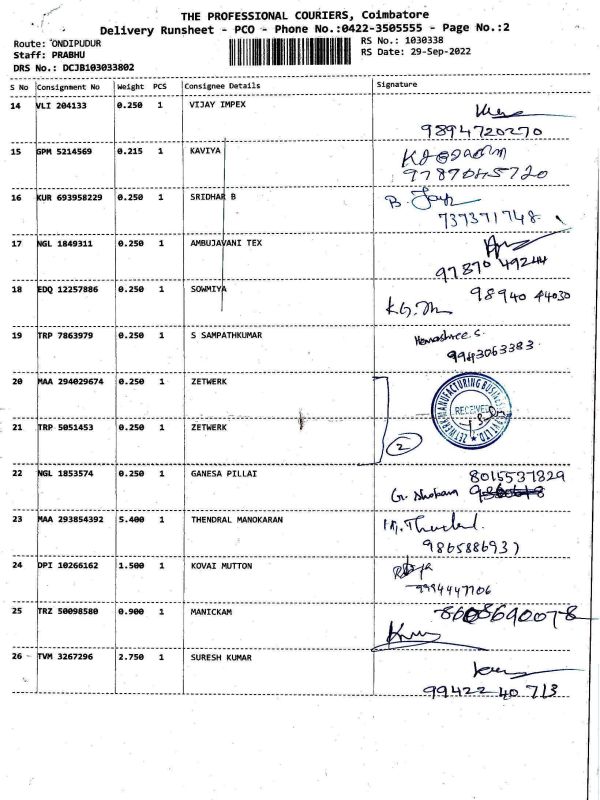 THE PROFESSIONAL COURIERS, Coimbatore
Delivery Runsheet - PCO - Phone No.:0422-3505555 - Page No.:2
Route: ONDIPUDUR
RS No.: 1030338
Staff: PRABHU
RS Date: 29-Sep-2022
DRS No.: DCJB103033802
S No Consignment No Weight PCS Consignee Details Signature
14 VLI 204133 0.250 1 VIJAY IMPEX
9894720270
15 GPM 5214569 0.215 1 KAVIYA
9787045720
16 KUR 693958229 0.250 1 SRIDHAR B
B.
737371748
17 NGL 1849311 0.250 1 AMBUJAVANI TEX
97870 49244
18 EDQ 12257886 0.250 1 SOWMIYA
98940 44030
19 TRP 7863979 0.250 1 S SAMPATHKUMAR
Hemashree S.
9943063383
20 MAA 294029674 0.250 1 ZETWERK
ZETWERK MANUFACTURING BUSINESS PVT LTD.
RECEIVED
21 TRP 5051453 0.250 1 ZETWERK
2
22 NGL 1853574 0.250 1 GANESA PILLAI
8015537829
23 MAA 293854392 5.400 1 THENDRAL MANOKARAN
986588693)
24 DPI 10266162 1.500 1 KOVAI MUTTON
9994447106
25 TRZ 50098580 0.900 1 MANICKAM
8608690078
26 TVM 3267296 2.750 1 SURESH KUMAR
99422 40 713